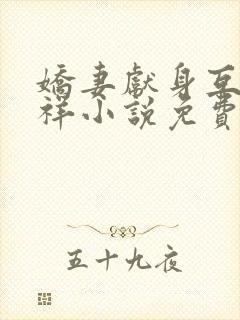 嬌妻獻身互
祥小說免費
五十九夜